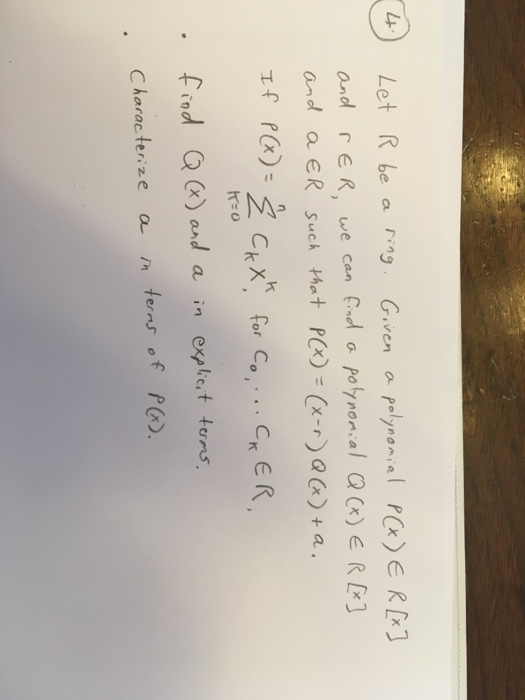 4. Let R be a ring. Given a polynomial P(x) ∈ R[x]
and r ∈ R, we can find a polynomial Q(x) ∈ R[x]
and a ∈ R such that P(x) = (x-r)Q(x) + a.
If P(x) = Σ_{k=0}^{n} C_k X^k, for C_0, ... C_k ∈ R,
• find Q(x) and a in explicit terms.
• Characterize a in terms of P(x).